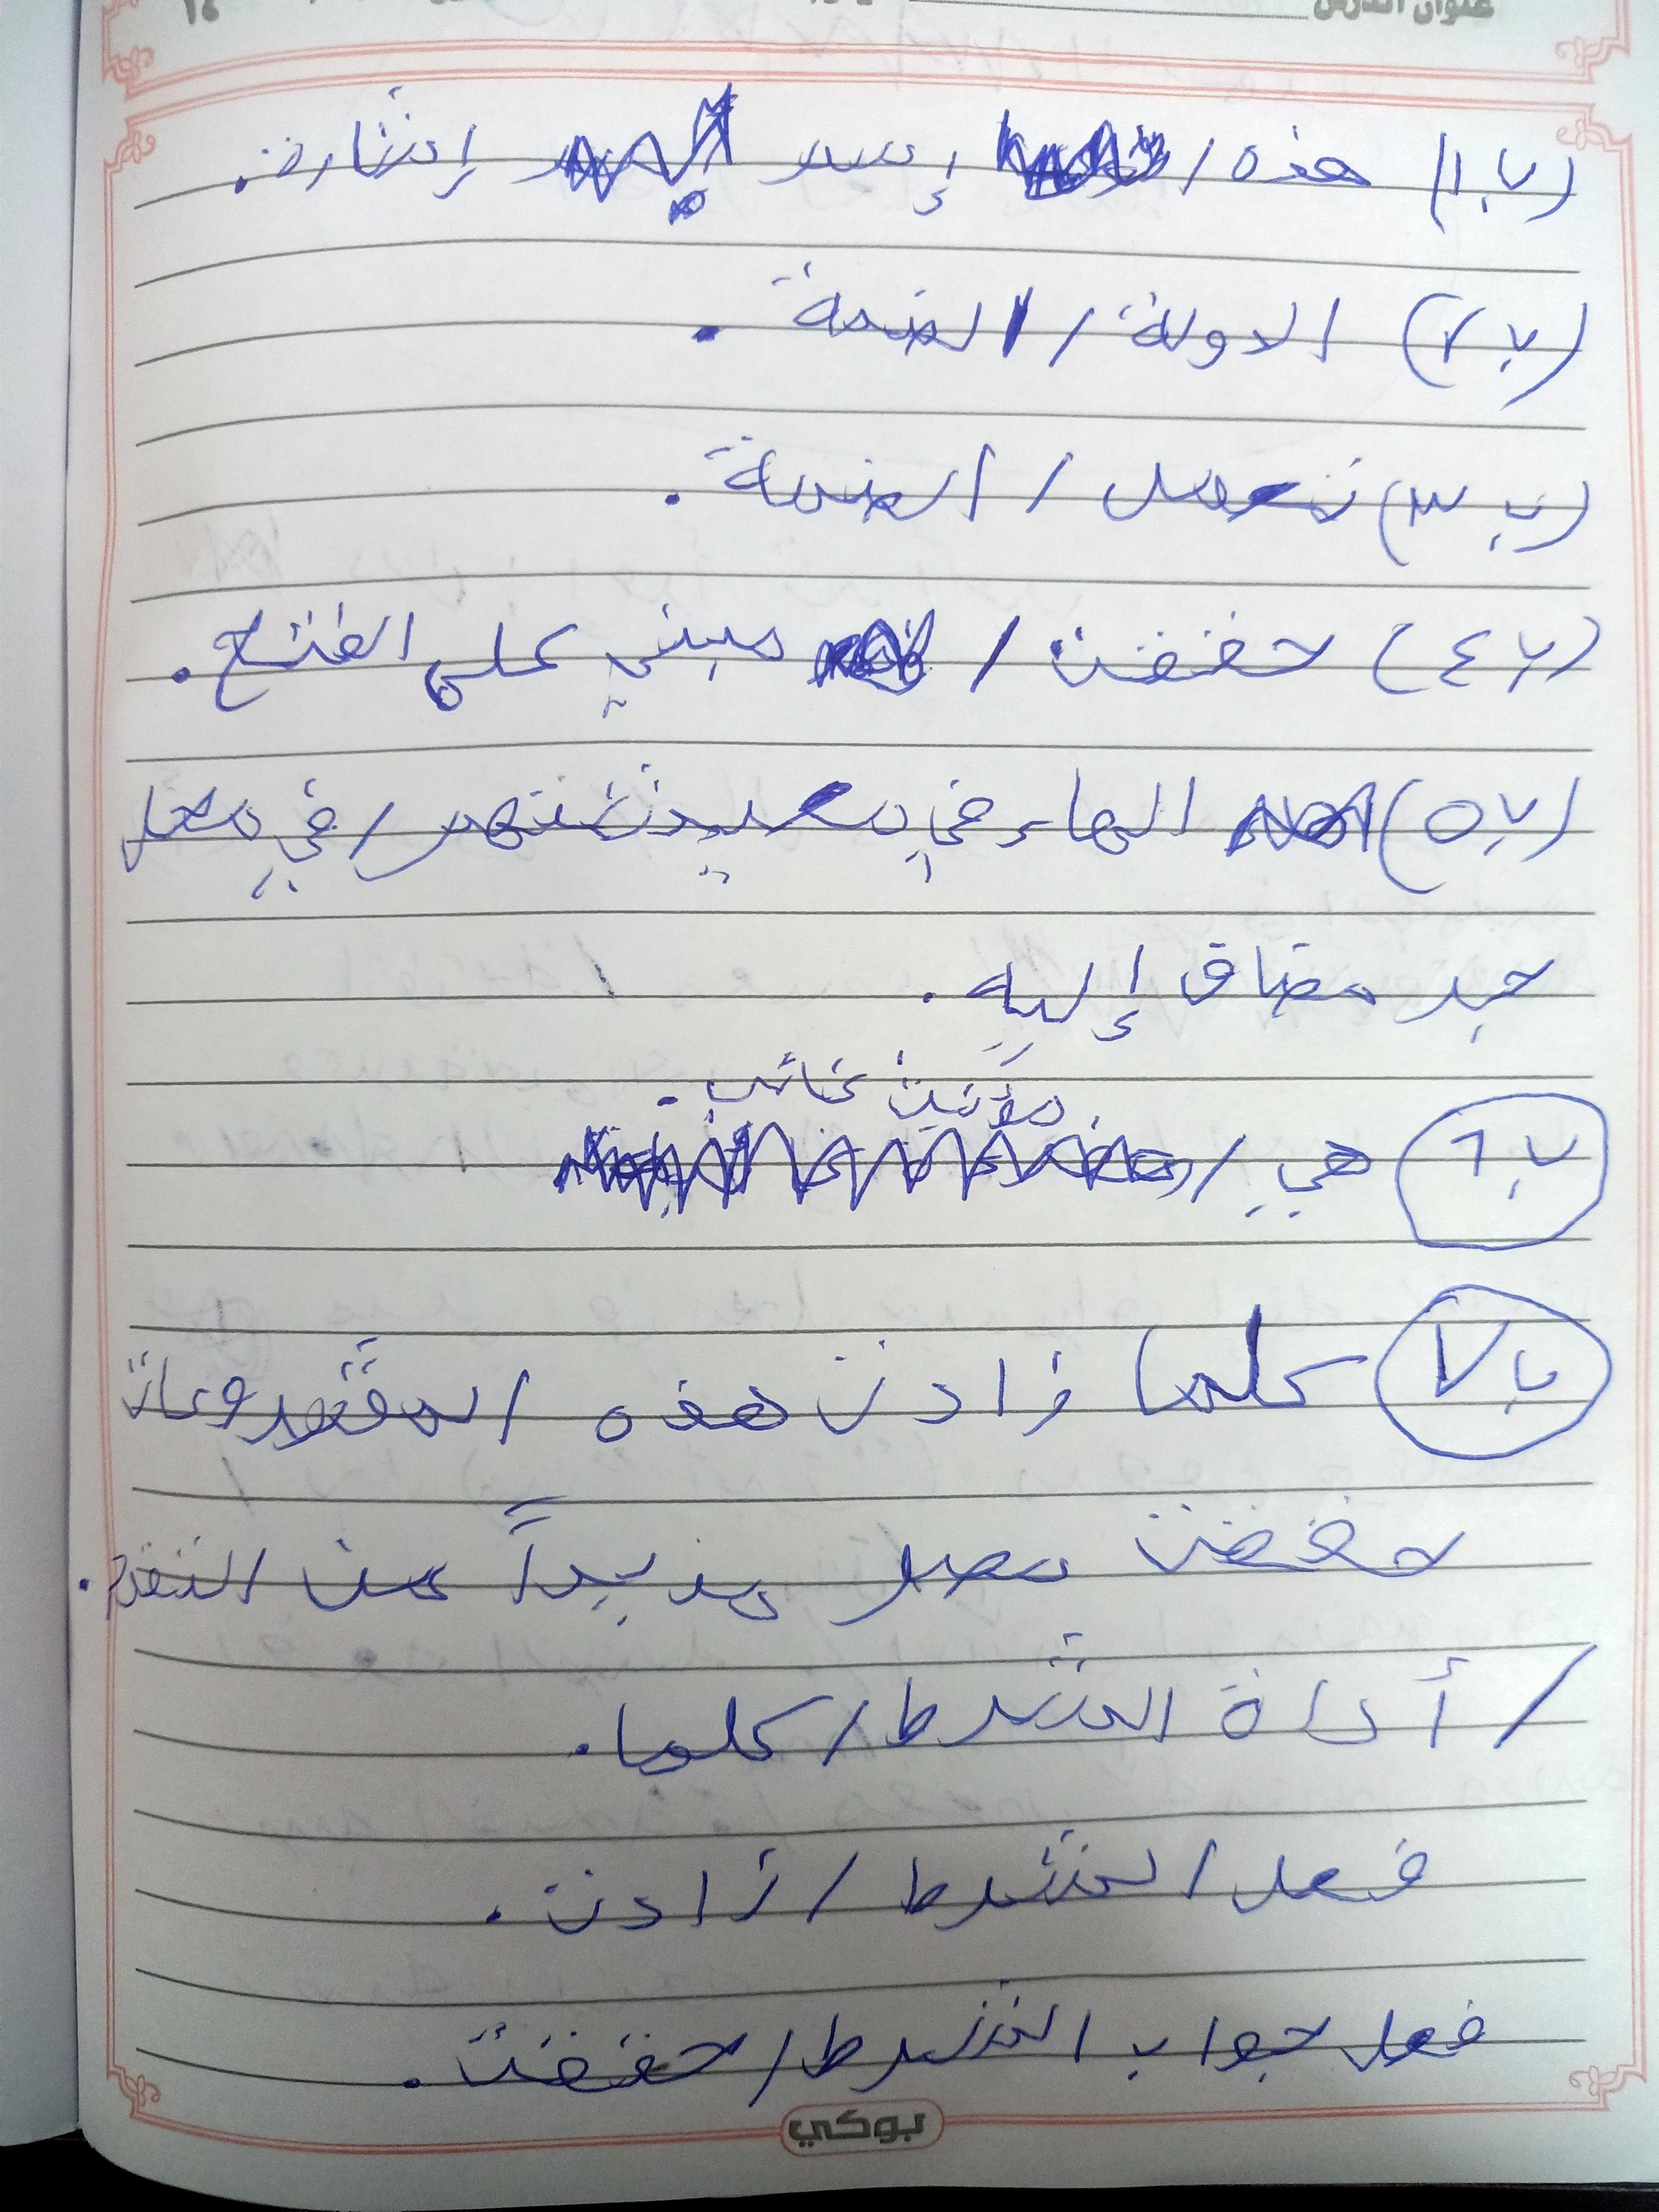 عنوان الدرس
(ب١) هذه / إسم إشارة.
(ب٢) الدولة / الضمة.
(ب٣) تعمل / الضمة.
(ب٤) حققت / مبني على الفتح.
(ب٥) الهاء في معيشتهم / في محل
جر مضاف إليه.
مؤنث غائب.
ب٦ هي /
ب٧ كلما زادت هذه المشروعات
حققت مصر مزيداً من التقدم.
/ أداة الشرط / كلما.
فعل الشرط / زادت.
فعل جواب الشرط / حققت.
بوكي